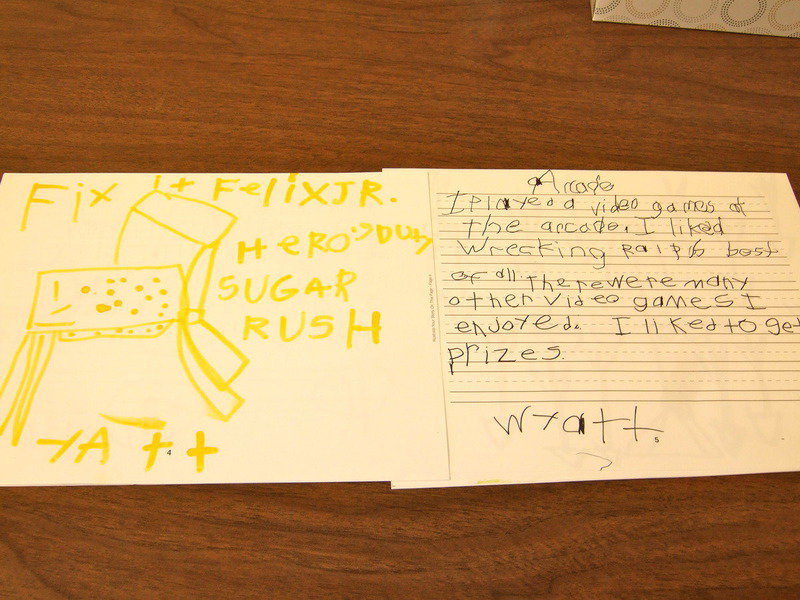 Fix it Felix JR.
HERO'S DUTY
SUGAR
RUSH
YATT
4
Arcade
I played video games at
the arcade. I liked
Wrecking Ralph best
of all. There were many
other video games I
enjoyed. I liked to get
prizes.
Wyatt
5